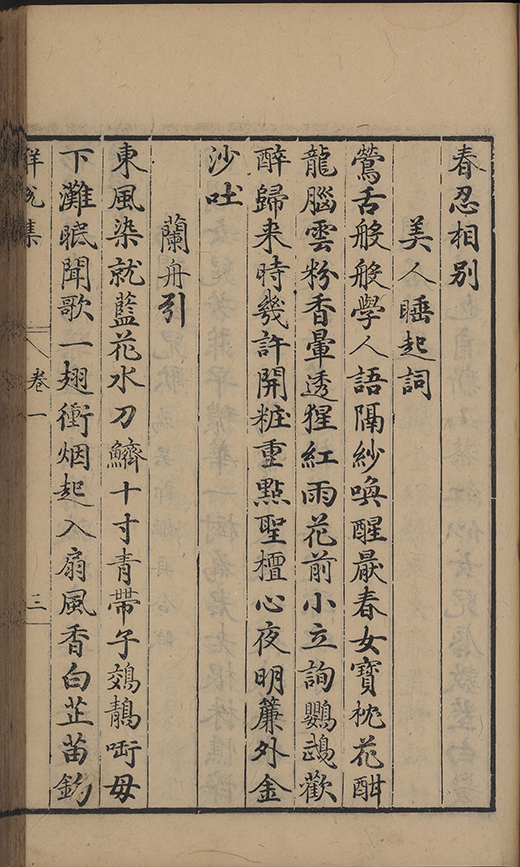 春忍相別
美人睡起詞
鶯舌般般學人語隔紗喚醒厭春女寶枕花酣
龍腦雲粉香暈透猩紅雨花前小立詢鸚鵡歡
醉歸来時幾許開粧重點聖檀心夜明簾外金
沙吐
蘭舟引
東風染就藍花水刀鱭十寸青帶子鵁鶄啣母
下灘眠聞歌一翅衝烟起入扇風香白芷苗釣
集
卷一
三